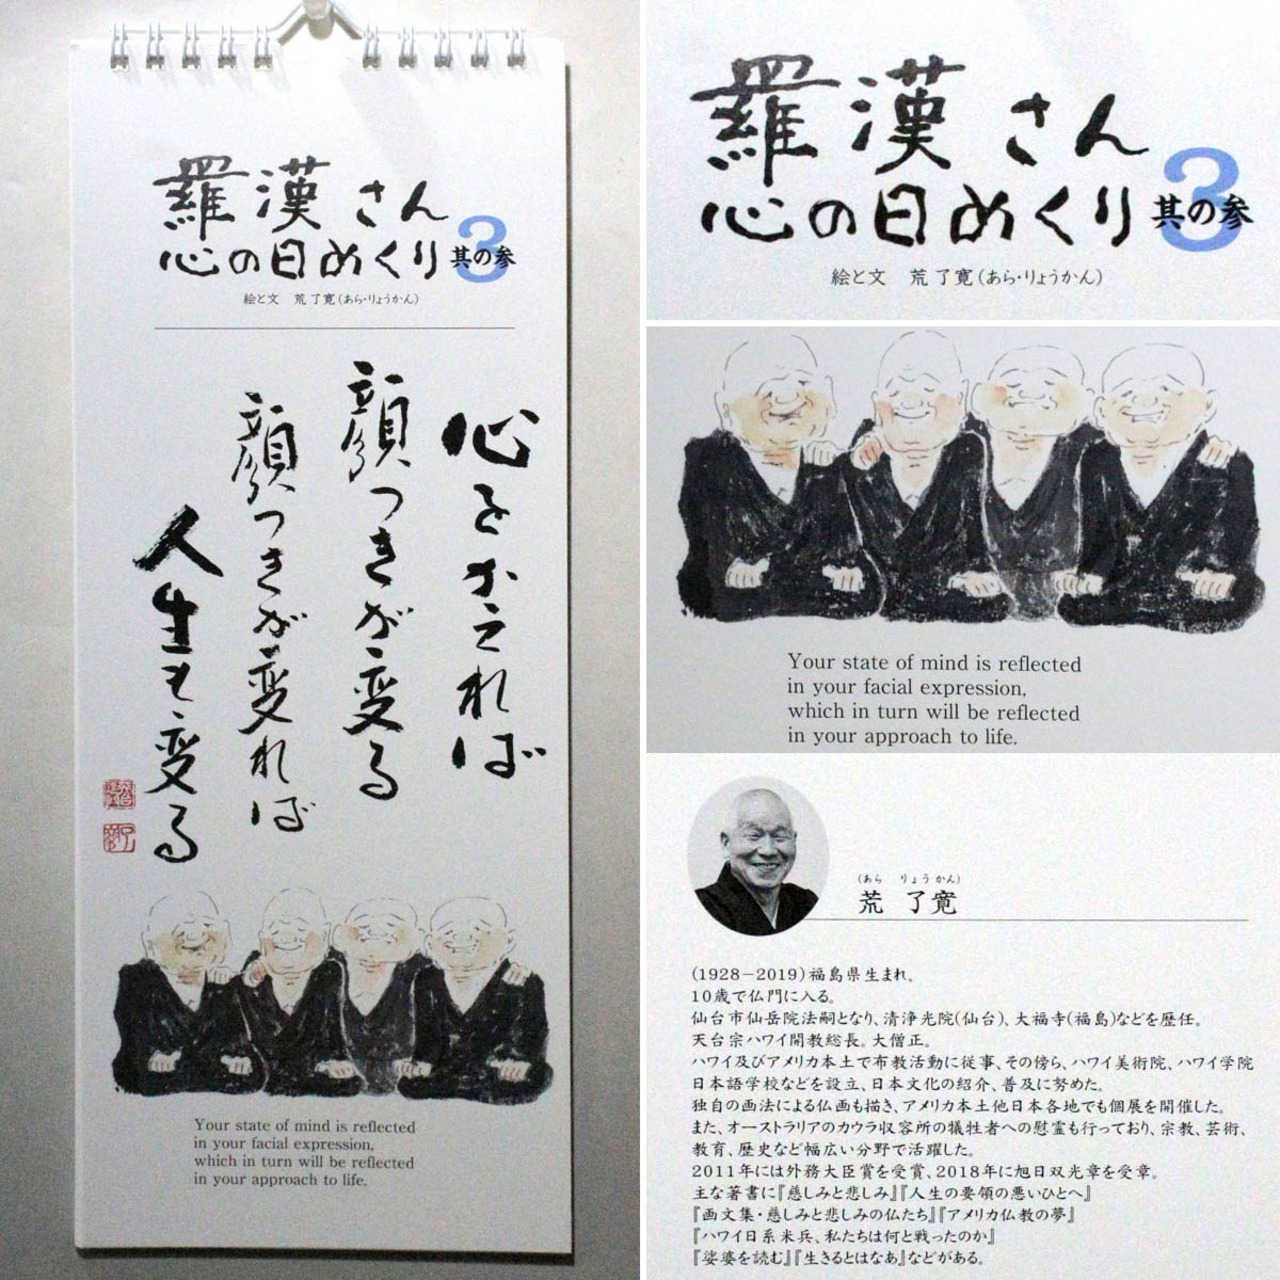 羅漢さん
心の日めくり 3 其の参
絵と文 荒 了寛(あら・りょうかん)
心をかえれば
顔つきが変る
顔つきが変れば
人生も変る
Your state of mind is reflected
in your facial expression,
which in turn will be reflected
in your approach to life.
羅漢さん
心の日めくり 3 其の参
絵と文 荒 了寛(あら・りょうかん)
Your state of mind is reflected
in your facial expression,
which in turn will be reflected
in your approach to life.
(あら りょうかん)
荒 了寛
(1928−2019)福島県生まれ。
10歳で仏門に入る。
仙台市仙岳院法嗣となり、清浄光院(仙台)、大福寺(福島)などを歴任。
天台宗ハワイ開教総長。大僧正。
ハワイ及びアメリカ本土で布教活動に従事、その傍ら、ハワイ美術院、ハワイ学院
日本語学校などを設立、日本文化の紹介、普及に努めた。
独自の画法による仏画も描き、アメリカ本土他日本各地でも個展を開催した。
また、オーストラリアのカウラ収容所の犠牲者への慰霊も行っており、宗教、芸術、
教育、歴史など幅広い分野で活躍した。
2011年には外務大臣賞を受賞、2018年に旭日双光章を受章。
主な著書に『慈しみと悲しみ』『人生の要領の悪いひとへ』
『画文集・慈しみと悲しみの仏たち』『アメリカ仏教の夢』
『ハワイ日系米兵、私たちは何と戦ったのか』
『娑婆を読む』『生きるとはなあ』などがある。